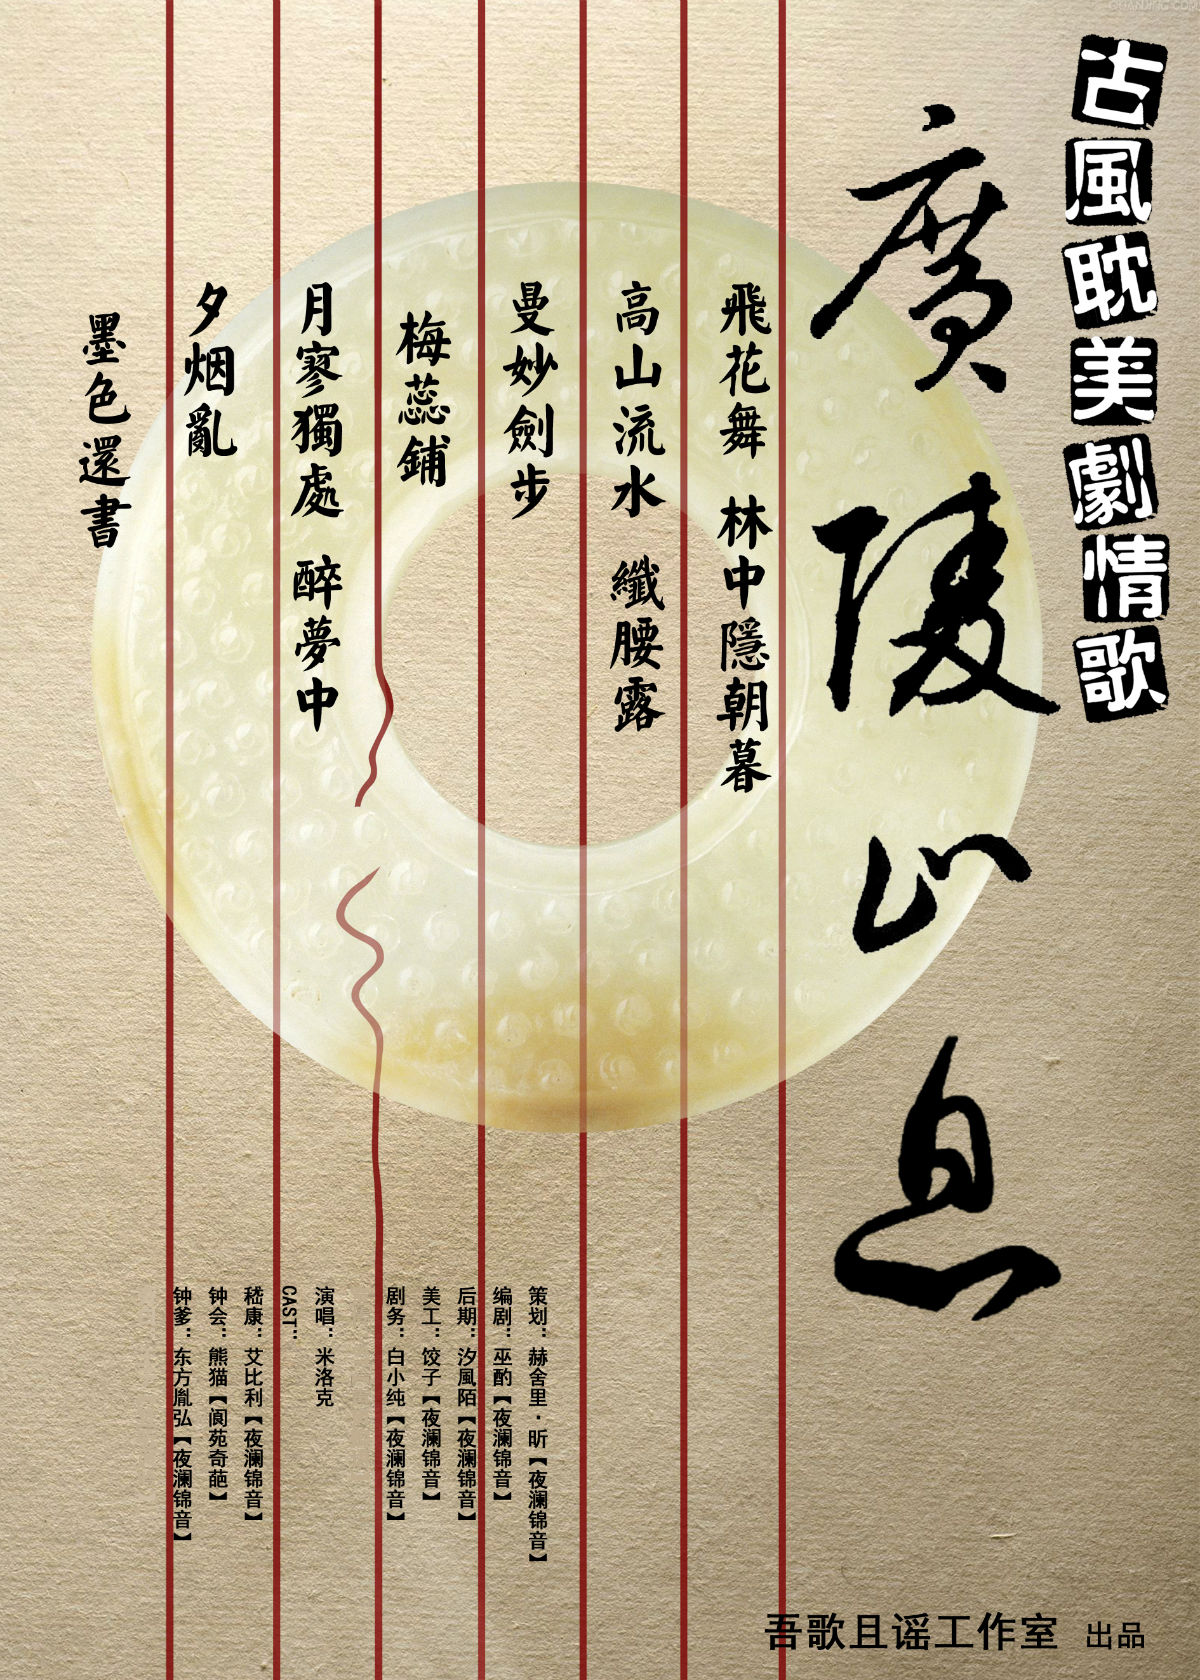 古風耽美劇情歌
廣陵止息
飛花舞 林中隱朝暮
高山流水 纖腰露
曼妙劍步
梅蕊鋪
月寥獨處 醉夢中
夕烟亂
墨色還書
策划：赫舍里·昕【夜澜锦音】
编剧：巫酌【夜澜锦音】
后期：汐風陌【夜澜锦音】
美工：饺子【夜澜锦音】
剧务：白小纯【夜澜锦音】
演唱：米洛克
CAST：
嵇康：艾比利【夜澜锦音】
钟会：熊猫【阆苑奇葩】
钟爹：东方胤弘【夜澜锦音】
吾歌且谣工作室 出品